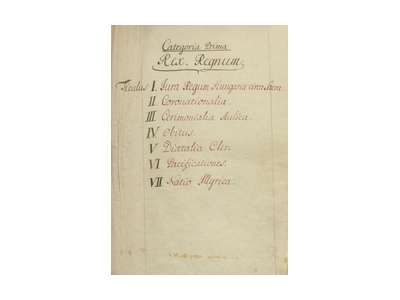 Categoria Prima
Rex. Regnum.
Titulus I. Jura Regum Hungariae
II. Coronationalia.
III. Cerimonialia Aulica.
IV Obitus.
V Diaetalia
VI Pacificationes.
VII. Natio Illyrica.